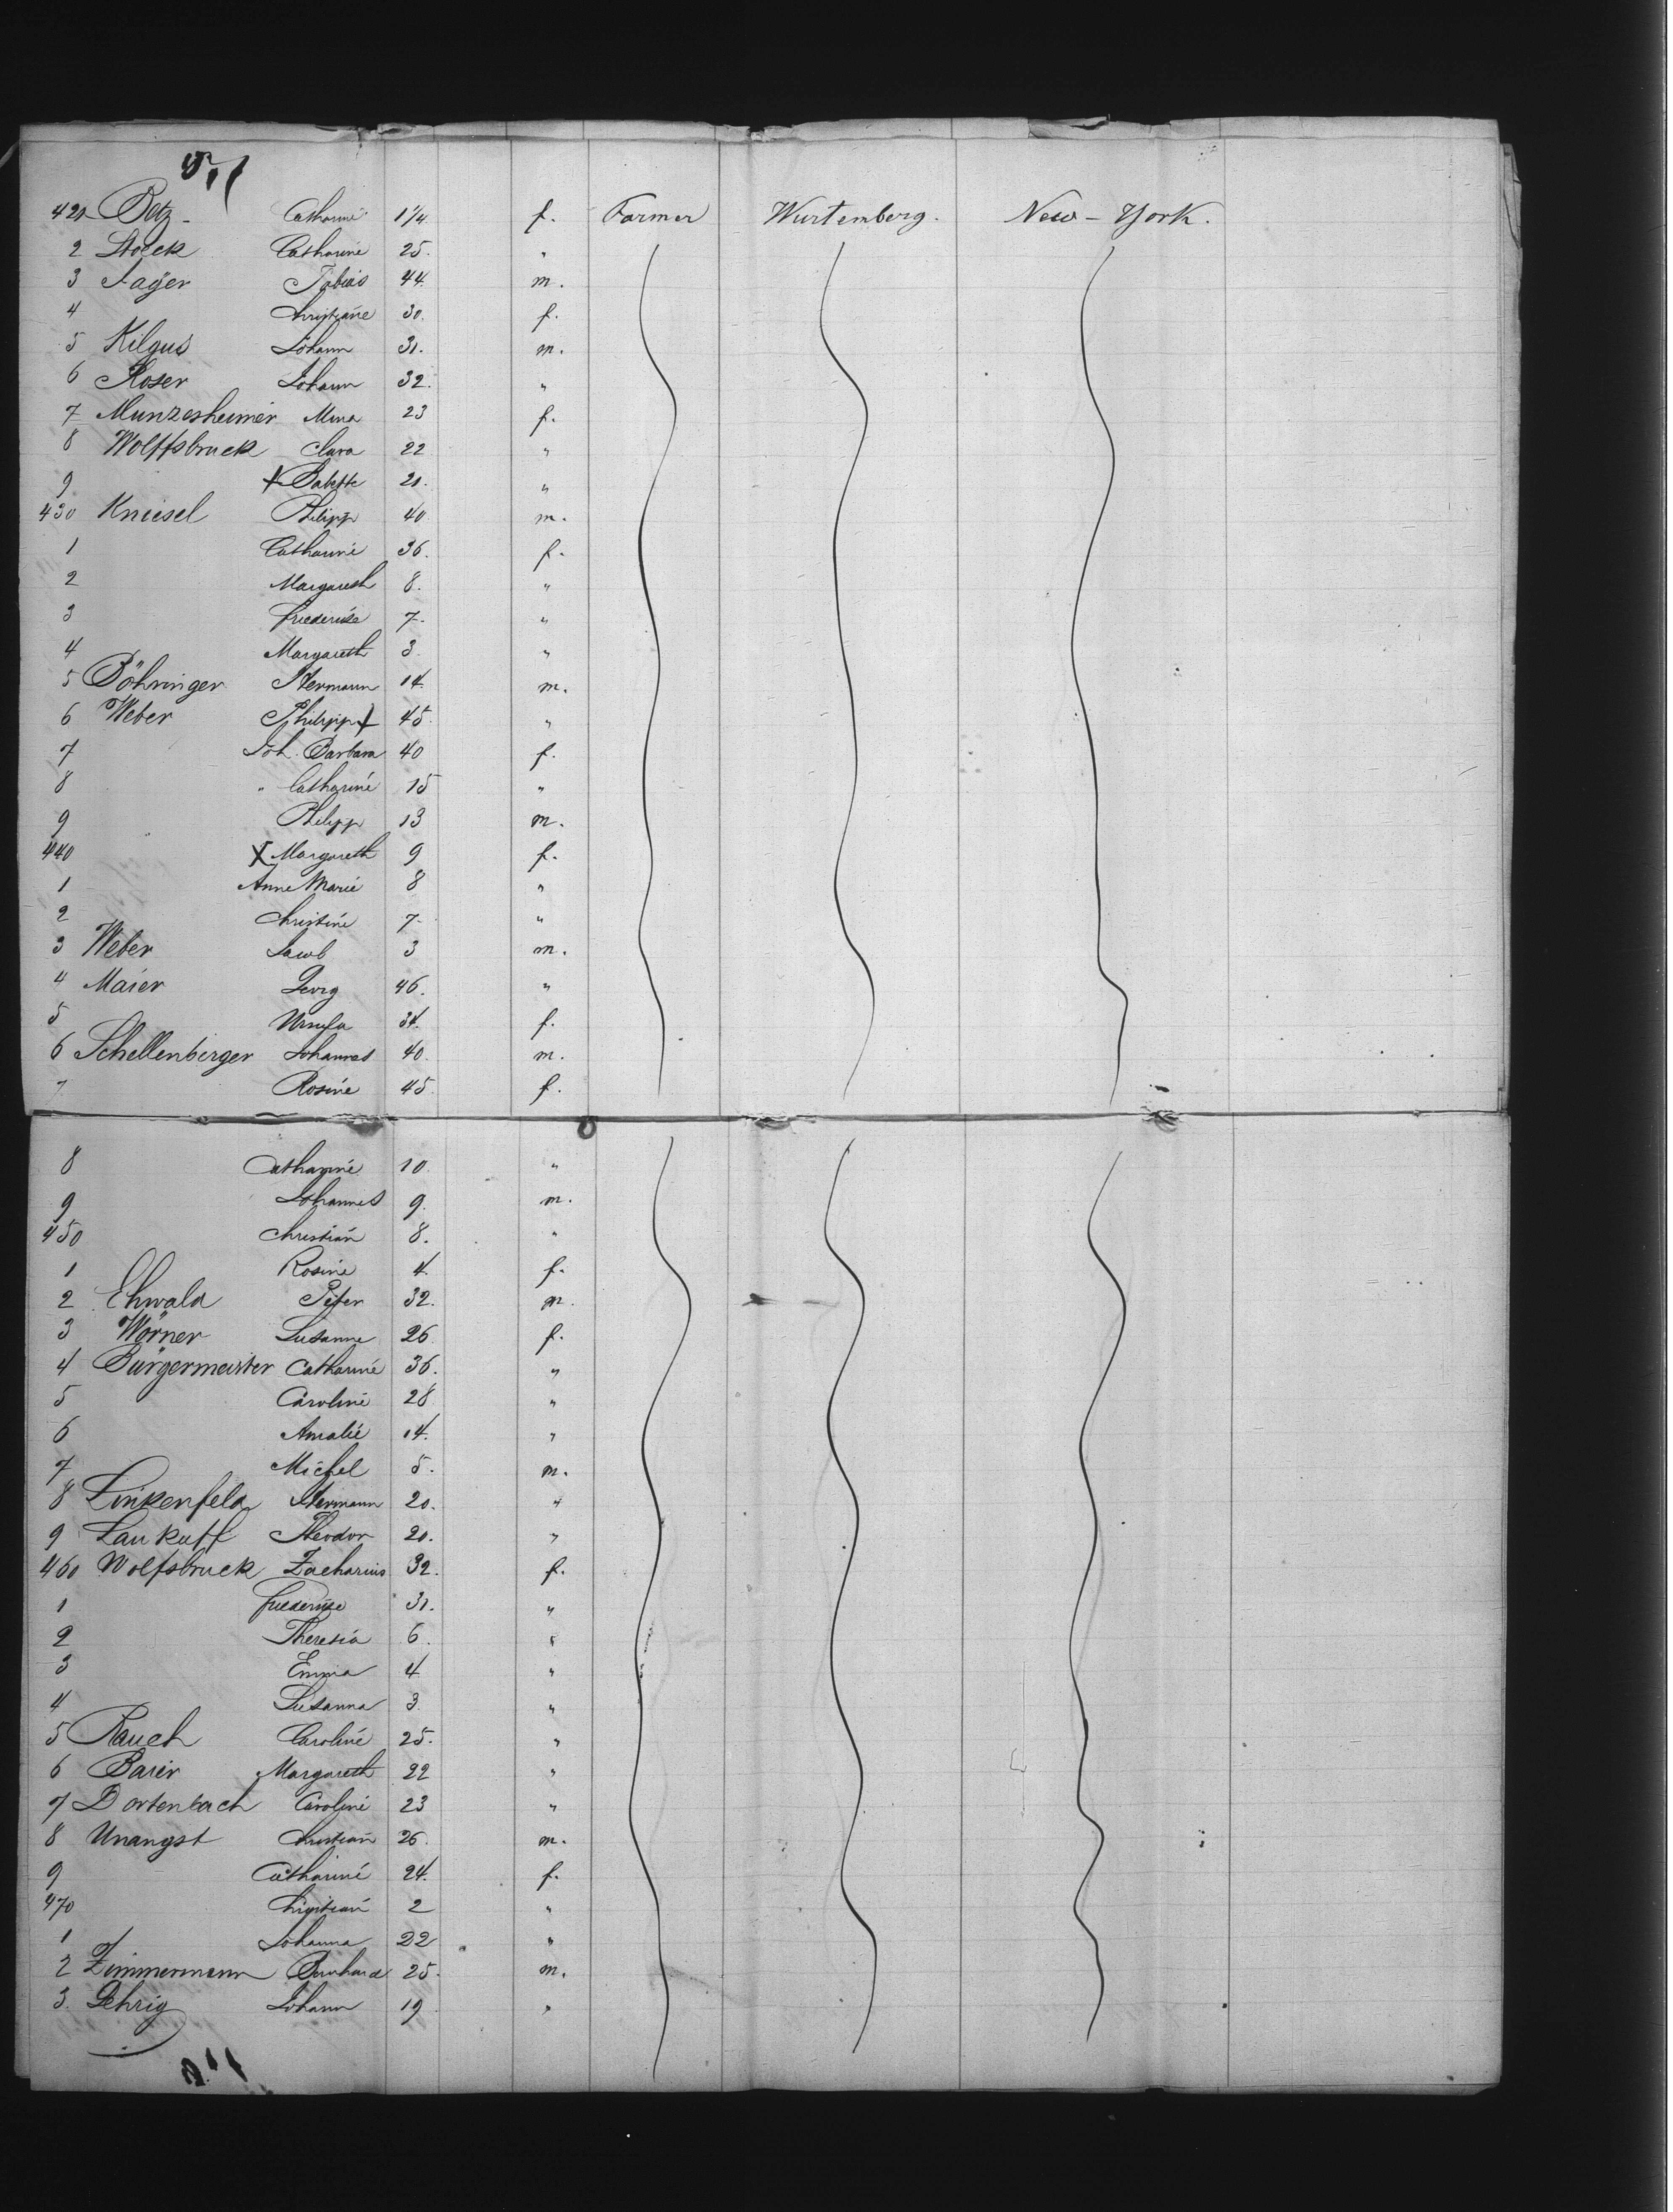 421 Betz - Catharine 1 1/4 f. Farmer Wurtemberg. New-York.
2 Stock Catharine 25. "
3 Jager Tobias 44. m.
4 Christiane 30. f.
5 Kilgus Johann 31. m.
6 Roser Johann 32. "
7 Munzesheimer Mina 23 f.
8 Wolffsbruck Clara 22 "
9 Babette 21. "
430 Kniesel Philipp 40 m.
1 Catharine 36. f.
2 Margareth 8. "
3 Friederike 7. "
4 Margareth 3. "
5 Böhringer Hermann 14. m.
6 Weber Philipp 45. "
7 Joh. Barbara 40 f.
8 " Catharine 15 "
9 Philipp 13 m.
440 Margareth 9 f.
1 Anne Marie 8 "
2 Christine 7. "
3 Weber Jacob 3 m.
4 Maier Georg 46. "
5 Ursula 34. f.
6 Schellenberger Johannes 40. m.
7 Rosine 45. f.
8 Catharine 10 "
9 Johannes 9. m.
450 Christian 8. "
1 Rosine 4. f.
2 Ehwald Peter 32. m.
3 Wörner Susanne 26. f.
4 Burgermeister Catharine 36. "
5 Caroline 28 "
6 Amalie 14. "
7 Michel 5. m.
8 Linkenfeld Hermann 20. "
9 Laukuff Theodor 20. "
460 Wolfsbruck Zacharius 32. f.
1 Friederike 31. "
2 Theresia 6. "
3 Emma 4 "
4 Susanna 3. "
5 Rauch Caroline 25. "
6 Baier Margareth 22 "
7 Dortenbach Caroline 23 "
8 Unangst Christian 26. m.
9 Catharine 24. f.
470 Christian 2 "
1 Johanna 22 "
2 Zimmermann Bernhard 25. m.
3. Gehrig Johann 19. "